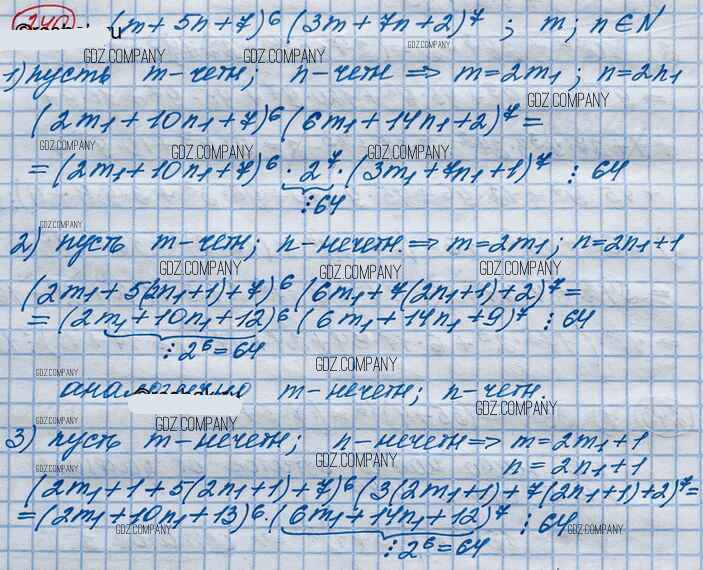 240 (m + 5n + 7)⁶ (3m + 7n + 2)⁷ ; m; n ∈ N
GDZ.COMPANY GDZ.COMPANY
1) пусть m - четн; n - четн ⇒ m = 2m₁; n = 2n₁
GDZ.COMPANY
(2m₁ + 10n₁ + 7)⁶ (6m₁ + 14n₁ + 2)⁷ =
GDZ.COMPANY GDZ.COMPANY GDZ.COMPANY
= (2m₁ + 10n₁ + 7)⁶ · 2⁷ · (3m₁ + 7n₁ + 1)⁷ ⋮ 64
⋮ 64
GDZ.COMPANY
2) пусть m - четн; n - нечетн. ⇒ m = 2m₁; n = 2n₁ + 1
GDZ.COMPANY GDZ.COMPANY GDZ.COMPANY
(2m₁ + 5(2n₁ + 1) + 7)⁶ (6m₁ + 7(2n₁ + 1) + 2)⁷ =
= (2m₁ + 10n₁ + 12)⁶ (6m₁ + 14n₁ + 9)⁷ ⋮ 64
⋮ 2⁶ = 64
GDZ.COMPANY GDZ.COMPANY
аналогично m - нечетн; n - четн.
GDZ.COMPANY GDZ.COMPANY GDZ.COMPANY
3) пусть m - нечетн; n - нечетн ⇒ m = 2m₁ + 1
GDZ.COMPANY GDZ.COMPANY n = 2n₁ + 1
(2m₁ + 1 + 5(2n₁ + 1) + 7)⁶ (3(2m₁ + 1) + 7(2n₁ + 1) + 2)⁷ =
= (2m₁ + 10n₁ + 13)⁶ · (6m₁ + 14n₁ + 12)⁷ ⋮ 64
GDZ.COMPANY GDZ.COMPANY GDZ.COMPANY
⋮ 2⁶ = 64